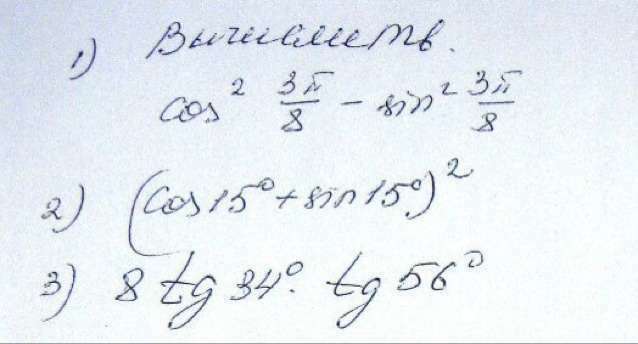 1) Вычислить.
cos² 3π/8 − sin² 3π/8
2) (cos 15° + sin 15°)²
3) 8 tg 34° · tg 56°